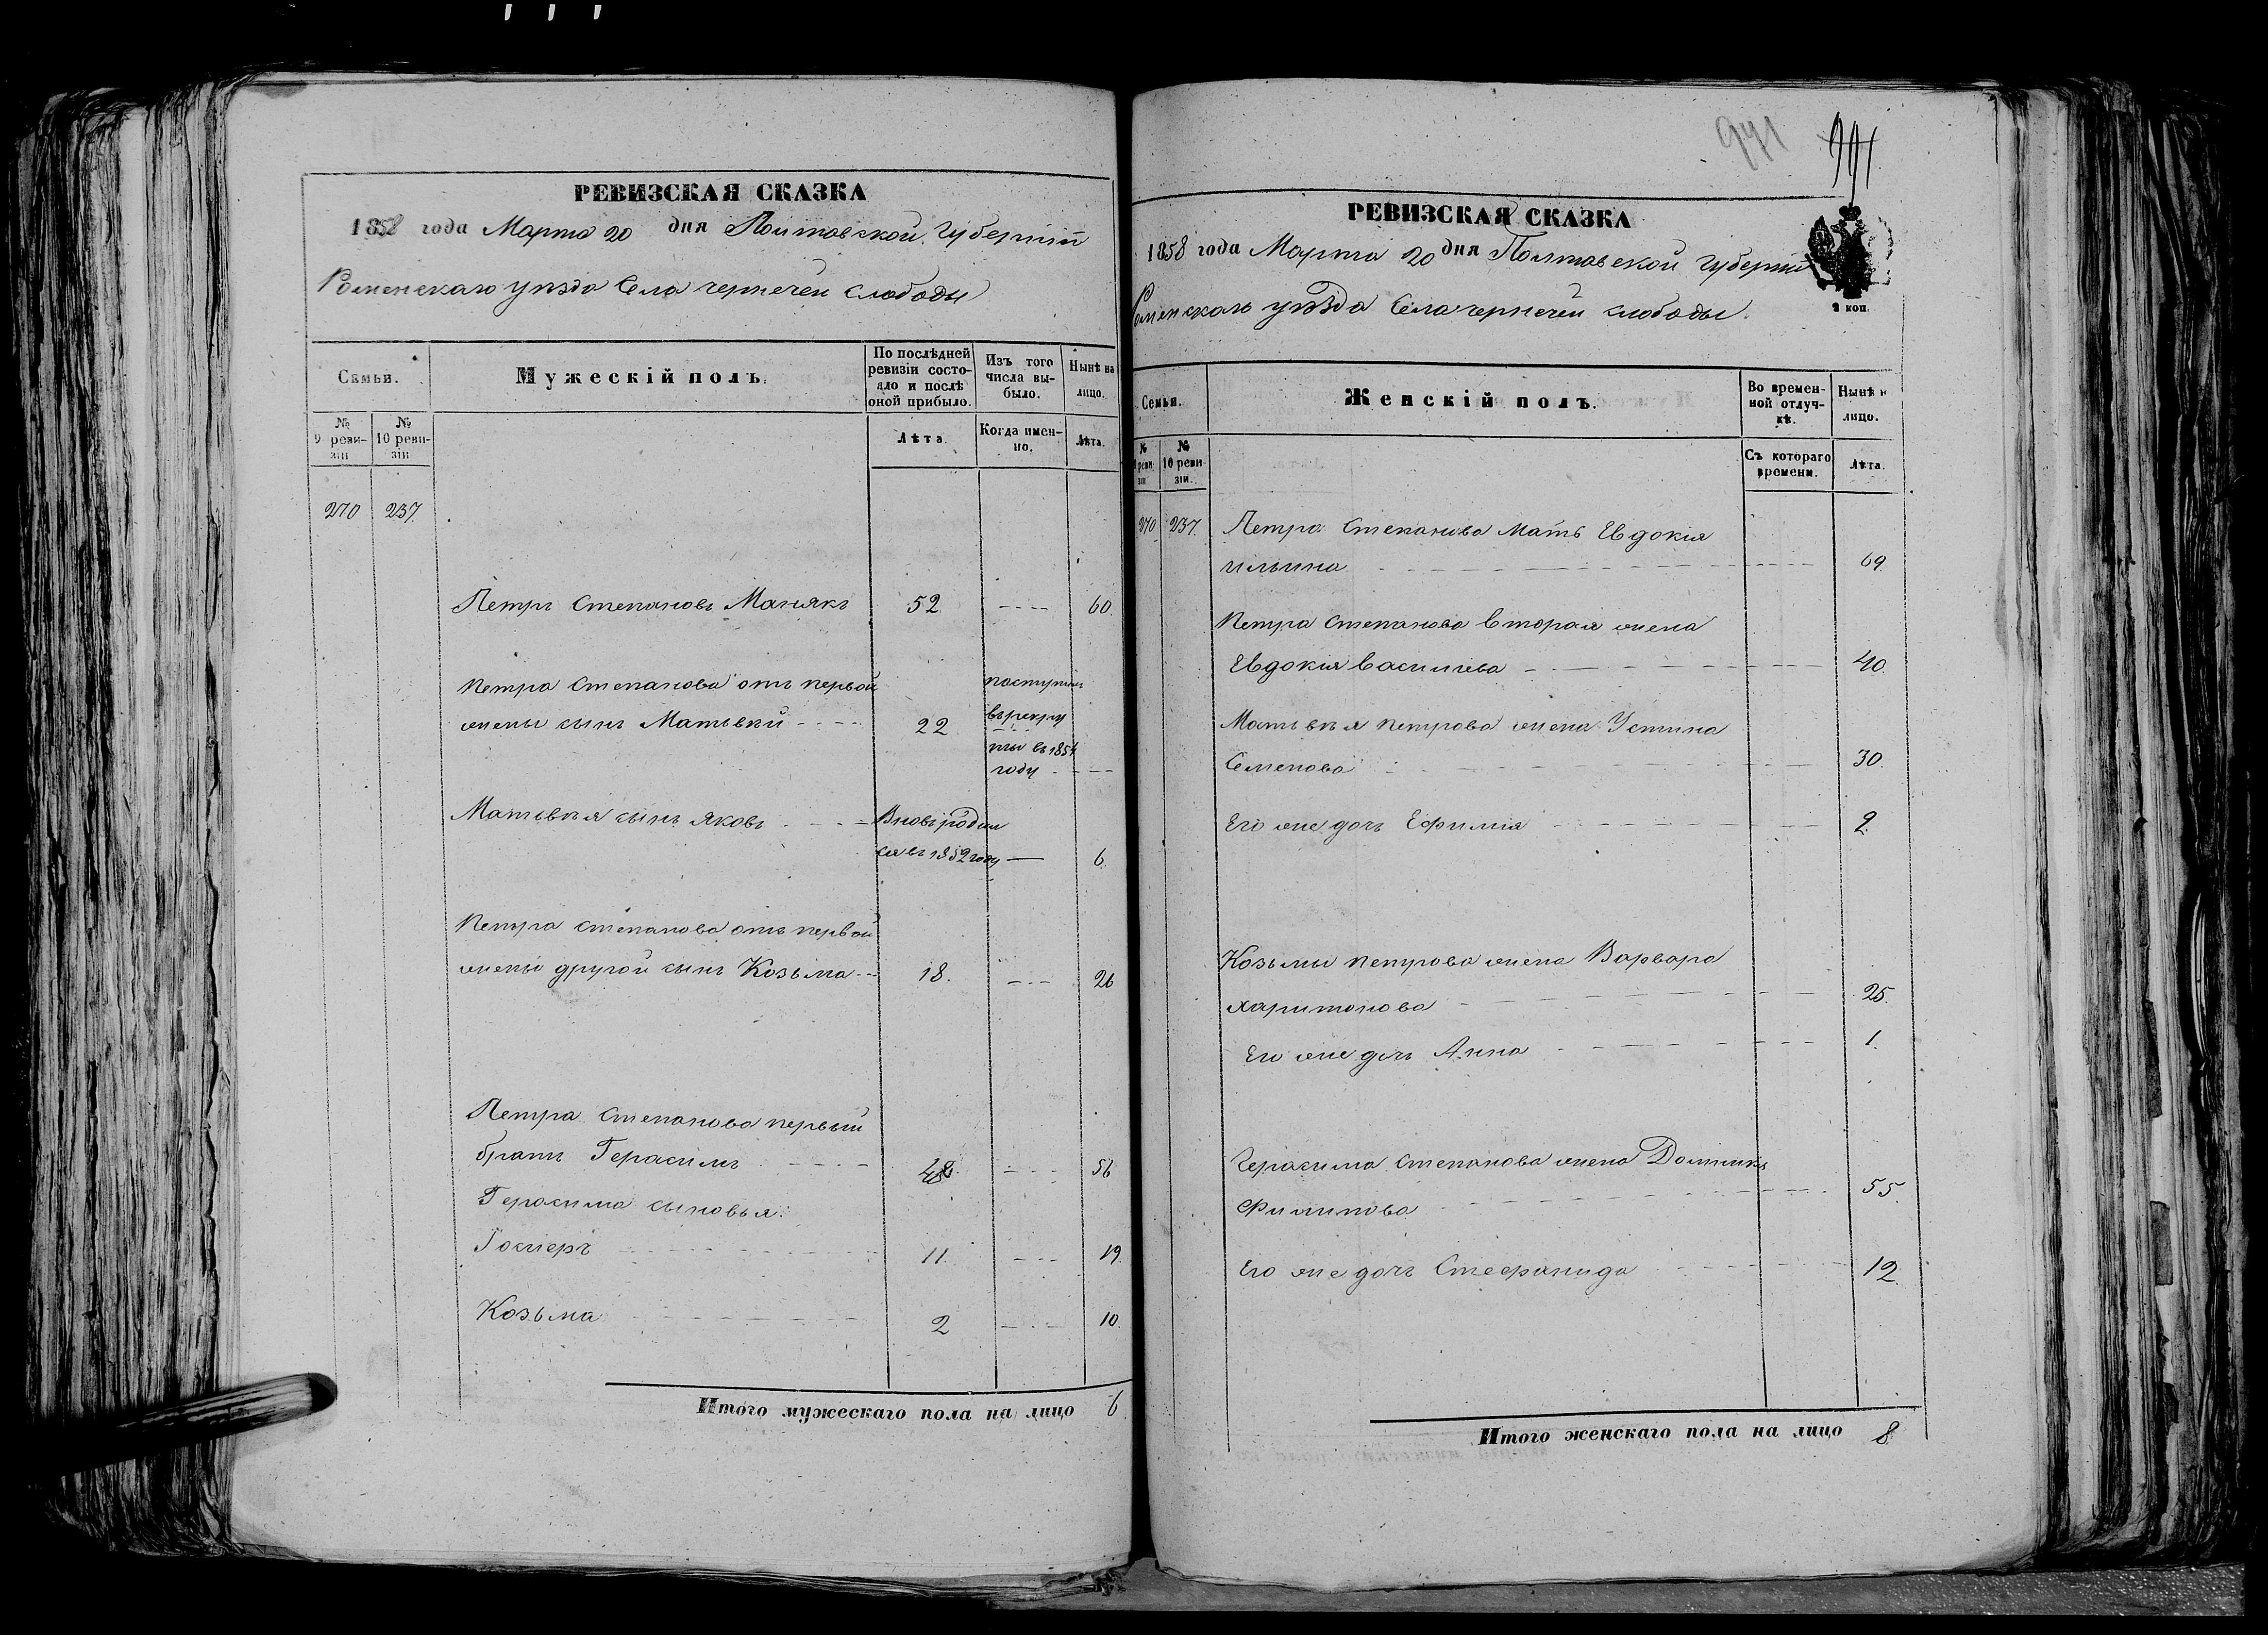 РЕВИЗСКАЯ СКАЗКА
1858 года Марта 20 дня Полтавской Губернии
Роменскаго уѣзда Села чернечей слободы
Семьи.
Мужескій полъ.
По послѣдней ревизіи состояло и послѣ оной прибыло.
Изъ того числа выбыло.
Нынѣ на лицо.
№ 9 ревизіи
№ 10 ревизіи
Лѣта.
Когда именно.
Лѣта.
270 237.
Петръ Степановъ Манякъ 52 60.
Петра Степанова отъ первой
жены сынъ Матьвѣй 22
поступилъ
въ рекру
ты въ 1854
году
Матьвѣя сынъ Яковъ Вновь родил
ся въ 1852 году 6.
Петра Степанова отъ первой
жены другой сынъ Козьма 18. 26
Петра Степанова первый
братъ Герасимъ 48. 56
Герасима сыновья:
11. 19.
Козьма 2 10.
Итого мужескаго пола на лицо 6.
941
РЕВИЗСКАЯ СКАЗКА
1858 года Марта 20 дня Полтавской Губерніи
Роменскаго уѣзда Села чернечей слободы.
2 коп.
Семьи.
Женскій полъ.
Во временной отлучкѣ.
Нынѣ н лицо.
№ 9 ревизіи
№ 10 ревизіи.
Съ котораго времени.
Лѣта.
270 237. Петра Степанова Мать Евдокія
ильина 69.
Петра Степанова вторая жена
Евдокія Васильева 40.
Матьвѣя петрова жена Устина
Семенова 30.
Его же дочь Ефимія 2.
Козьмы петрова жена Варвара
харитонова 25.
Его же дочь Анна 1.
Герасима Степанова жена Домника
Филипова 55.
Его же дочь Стефанида 12.
Итого женскаго пола на лицо 8